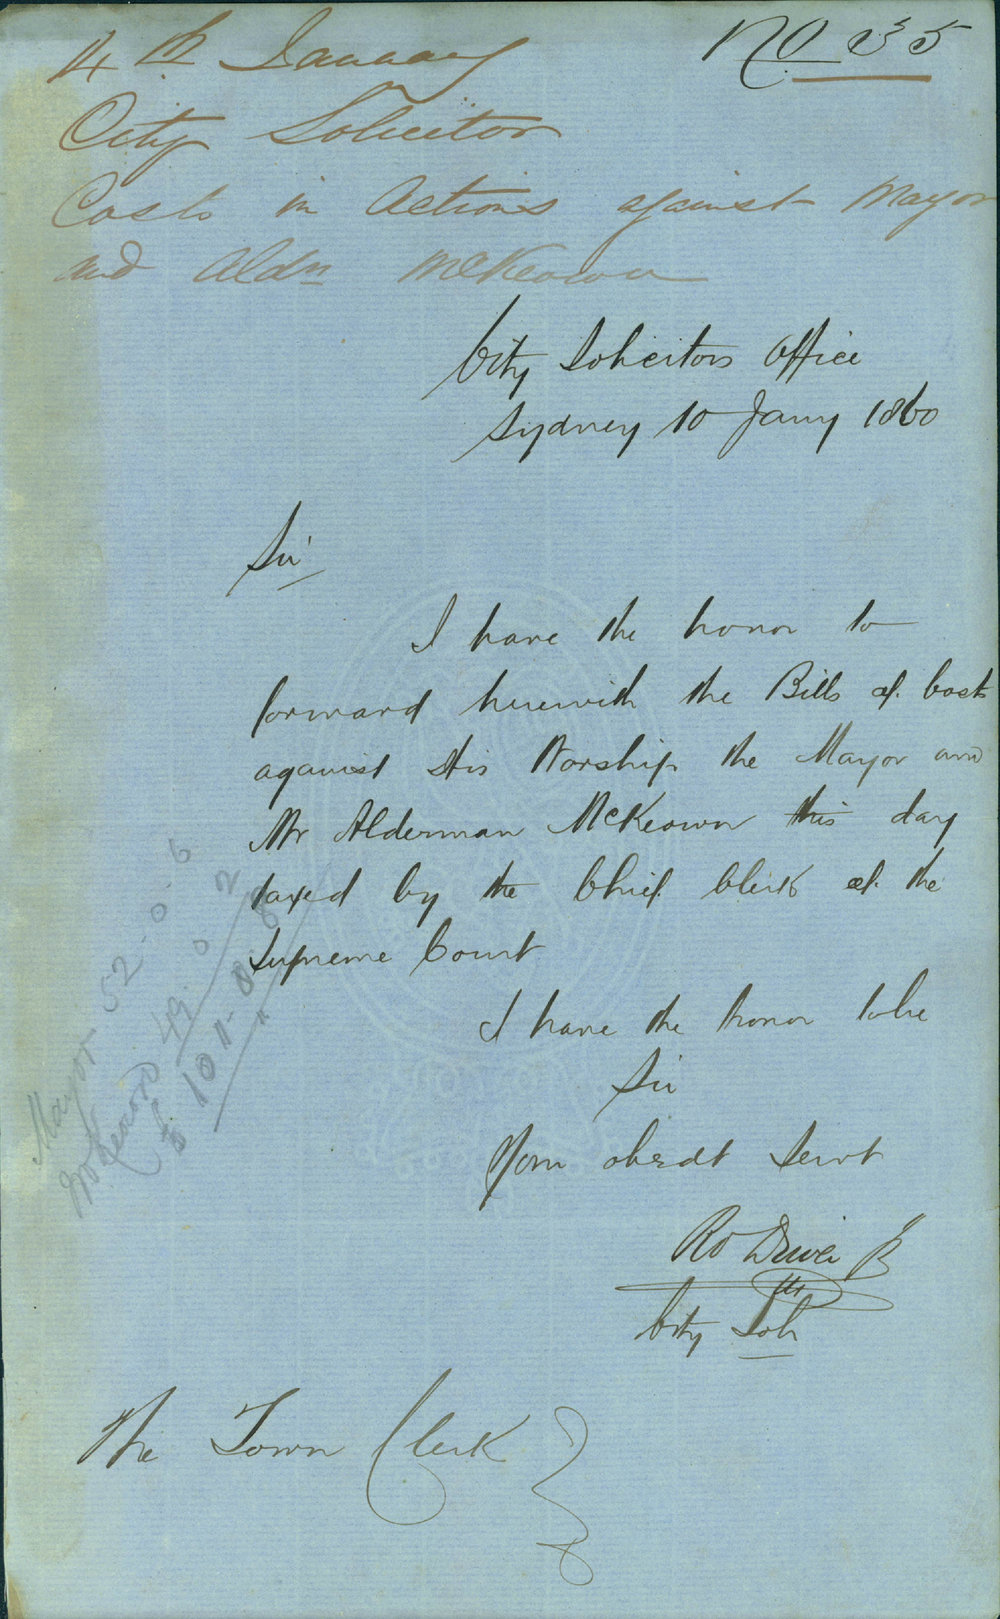 No 35
14th January
City Solicitor
Costs in Actions against Mayor
and Aldn McKeown
City Solicitors Office
Sydney 10 Jany 1860
Sir
I have the honor to
forward herewith the Bills of Costs
against His Worship the Mayor and
Mr Alderman McKeown this day
taxed by the Chief Clerk of the
Supreme Court
I have the honor to be
Sir
Your obedt Servt
Ro Driver Jr
City Solr
The Town Clerk
Mayor 52. 0. 6
McKeown 49. 0 2
£ 101 . 0. 8